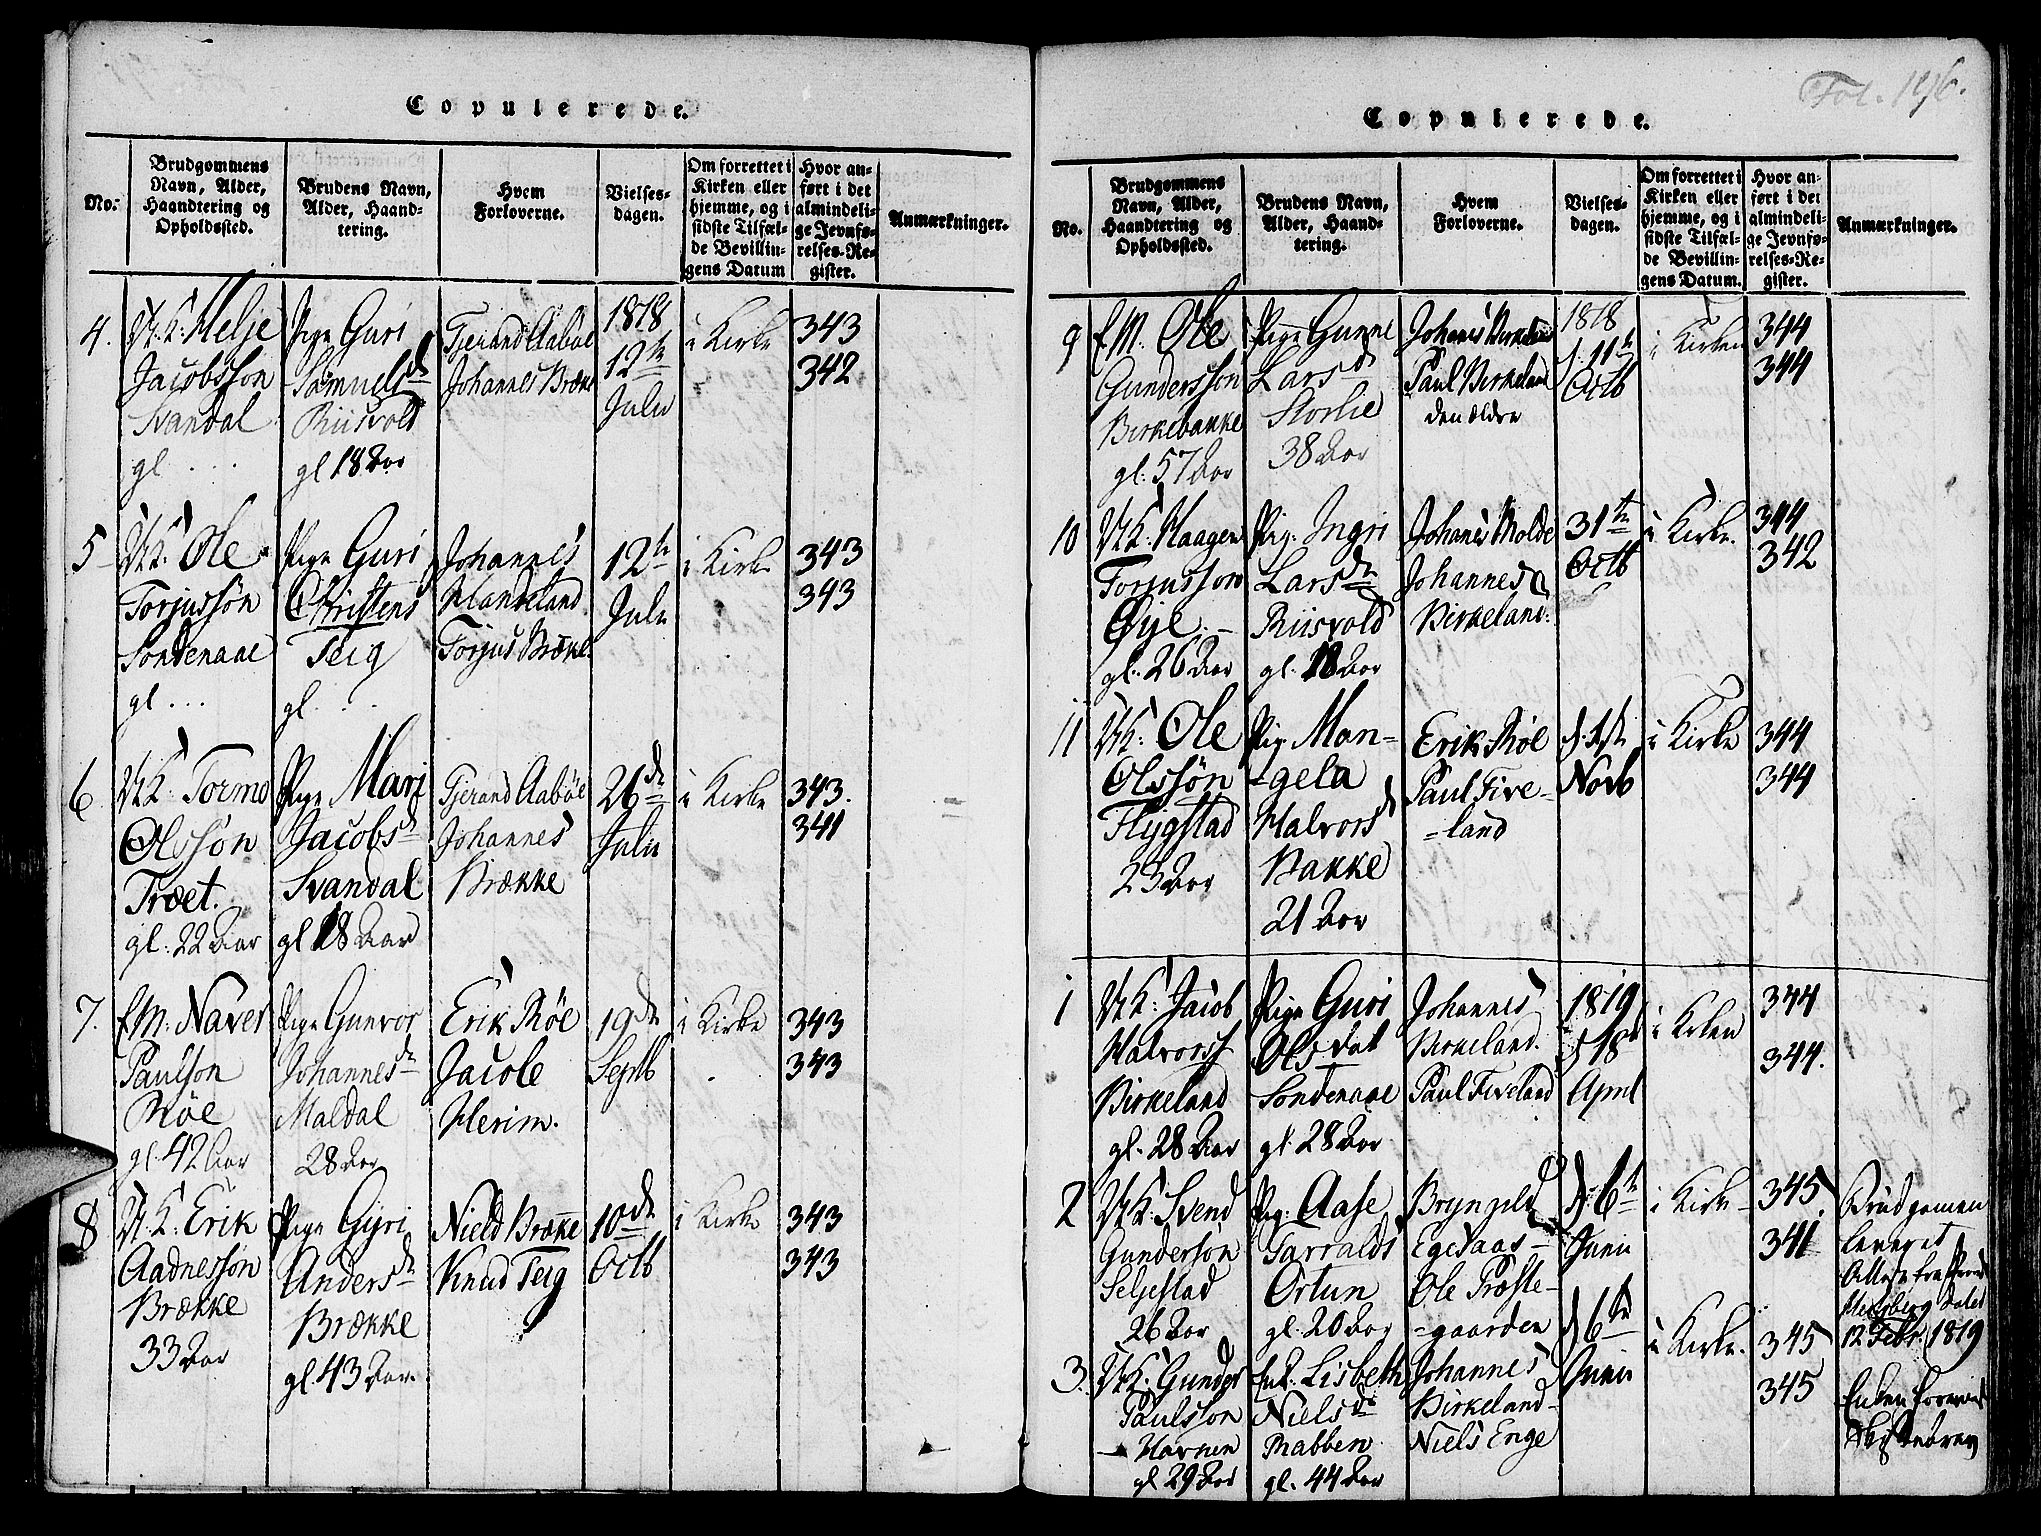 Copulerede.
No.
Brudgommens
Navn, Alder,
Haandtering og
Opholdssted.
Brudens Navn,
Alder, Haand-
tering.
Hvem
Forloverne.
Vielses-
dagen.
Om forrettet i
Kirken eller
hjemme, og i
sidste Tilfæl-
de Bevillin-
gens Datum
Hvor an-
ført i det
almindeli-
ge Jevnfø-
relses-Re-
gister.
Anmærkninger.
4.
Helje
Jacobsson
Svandal
gl . . .
Pige Guri
Samuelsd
Riisvold
gl 18 Aar
Tjerand Aaboe
Johannes Brække
1818
12te
Julii
i Kirke
343
342
5
Ole
Torjussøn
Sondenaae
gl ...
Pige Guri
Christens
Teig
gl . . .
Johannes
Handeland
Torjus Brække
12te
Juli
i Kirke
343
343
6
Tormo
Olssøn
Træet.
gl. 22 Aar
Pige Mari
Jacobsd
Svandal
gl 18 Aar
Tjerand Aabøe
Johannes
Brække
26de
Julii
i Kirke
343.
341
7.
E.M. Naver
Paulson
Røe
gl. 42 Aar
Pige Gunvor
Johannesd
Maldal
28 Aar
Erik Røe
Jacob
Herim.
19de
Septb
i Kirke
343
343
8
Erik
Aadnessøn
Brække
33 Aar
Pige Gyri
Andersd
Brække
gl. 43 Aar.
Nield Brække
Knud Teig
10de
Octb
i Kirke
343
343
Fol. 196.
Copulerede.
No.
Brudgommens
Navn, Alder,
Haandtering og
Opholdssted.
Brudens Navn,
Alder, Haand-
tering.
Hvem
Forloverne.
Vielses-
dagen.
Om forrettet i
Kirken eller
hjemme, og i
sidste Tilfæl-
de Bevillin-
gens Datum.
Hvor an-
ført i det
almindeli-
ge Jevnfø-
relses-Re-
gister.
Anmærkninger.
9
E.M. Ole
Gundersson
Birkebakke
gl. 57 Aar
Pige Gunne
Larsd
Storlie
38 Aar
Johanes Birkeland
Paul Birkeland
den ældre
1818
d. 11te
Octb
i Kirken
344
344
10
Haagen
Torjusson
Øye. -
gl. 26 Aar
Pig. Ingri
Larsd
Riisvold
gl. 18 Aar
Johanes Molde
Johannes
Birkeland.
31te
Octb
i Kirke.
344
342
11
Ole
Olssøn
Flygstad
23 Aar
Pig. Man-
-gela
Halvorsd
Bakke
21 Aar
Erik Røe
Paul Five-
-land
d. 1ste
Novb
i Kirke
344
344
1
Jacob
Halvorss
Birkeland
gl. 28 Aar
Pige Guri
Olsdat
Sondenaae
gl. 28 Aar
Johannes
Birkeland.
Paul Fiveland
1819
d 18d
April
i Kirken
344
344.
2
Svend
Gunderson
Seljestad
26 Aar
Pig. Aase
Tarralds
Ortun
gl. 20 Aar
Brynyeld
Egetaas-
Ole Præste-
-gaarden
d. 6te
Junii
i Kirke
345.
341
Brudgomen
leveret
Attest fra
12 Febr. 1819
3.
Gunder
Paulsson
Havnen
gl. 29 Aar
Enk. Lisbeth
Nielsd
Rabben
gl. 44 Aar
Johannes
Birkeland-
Niels Enge
d 6te
Junii
i Kirke.
345
345
Enken